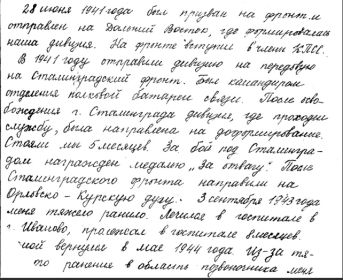 28 июня 1941 года был призван на фронт и
отправлен на Дальний Восток, где формировалась
наша дивизия. На фронте вступил в члены КПСС.
В 1941 году отправили дивизию на передовую
на Сталинградский фронт. Был командиром
отделения полковой батареи связи. После осво-
бождения г. Сталинграда дивизия, где проходил
службу, была направлена на доформирование.
Стояли мы 5 месяцев. За бой под Сталингра-
дом награжден медалью „За отвагу". После
Сталинградского фронта направили на
Орловско-Курскую дугу. 3 сентября 1943 года
меня тяжело ранило. Лечился в госпитале в
г. Иваново, пролежал в госпитале 8 месяцев.
мой вернулся в мае 1944 года. Из-за тя-
го ранения в область позвоночника меня